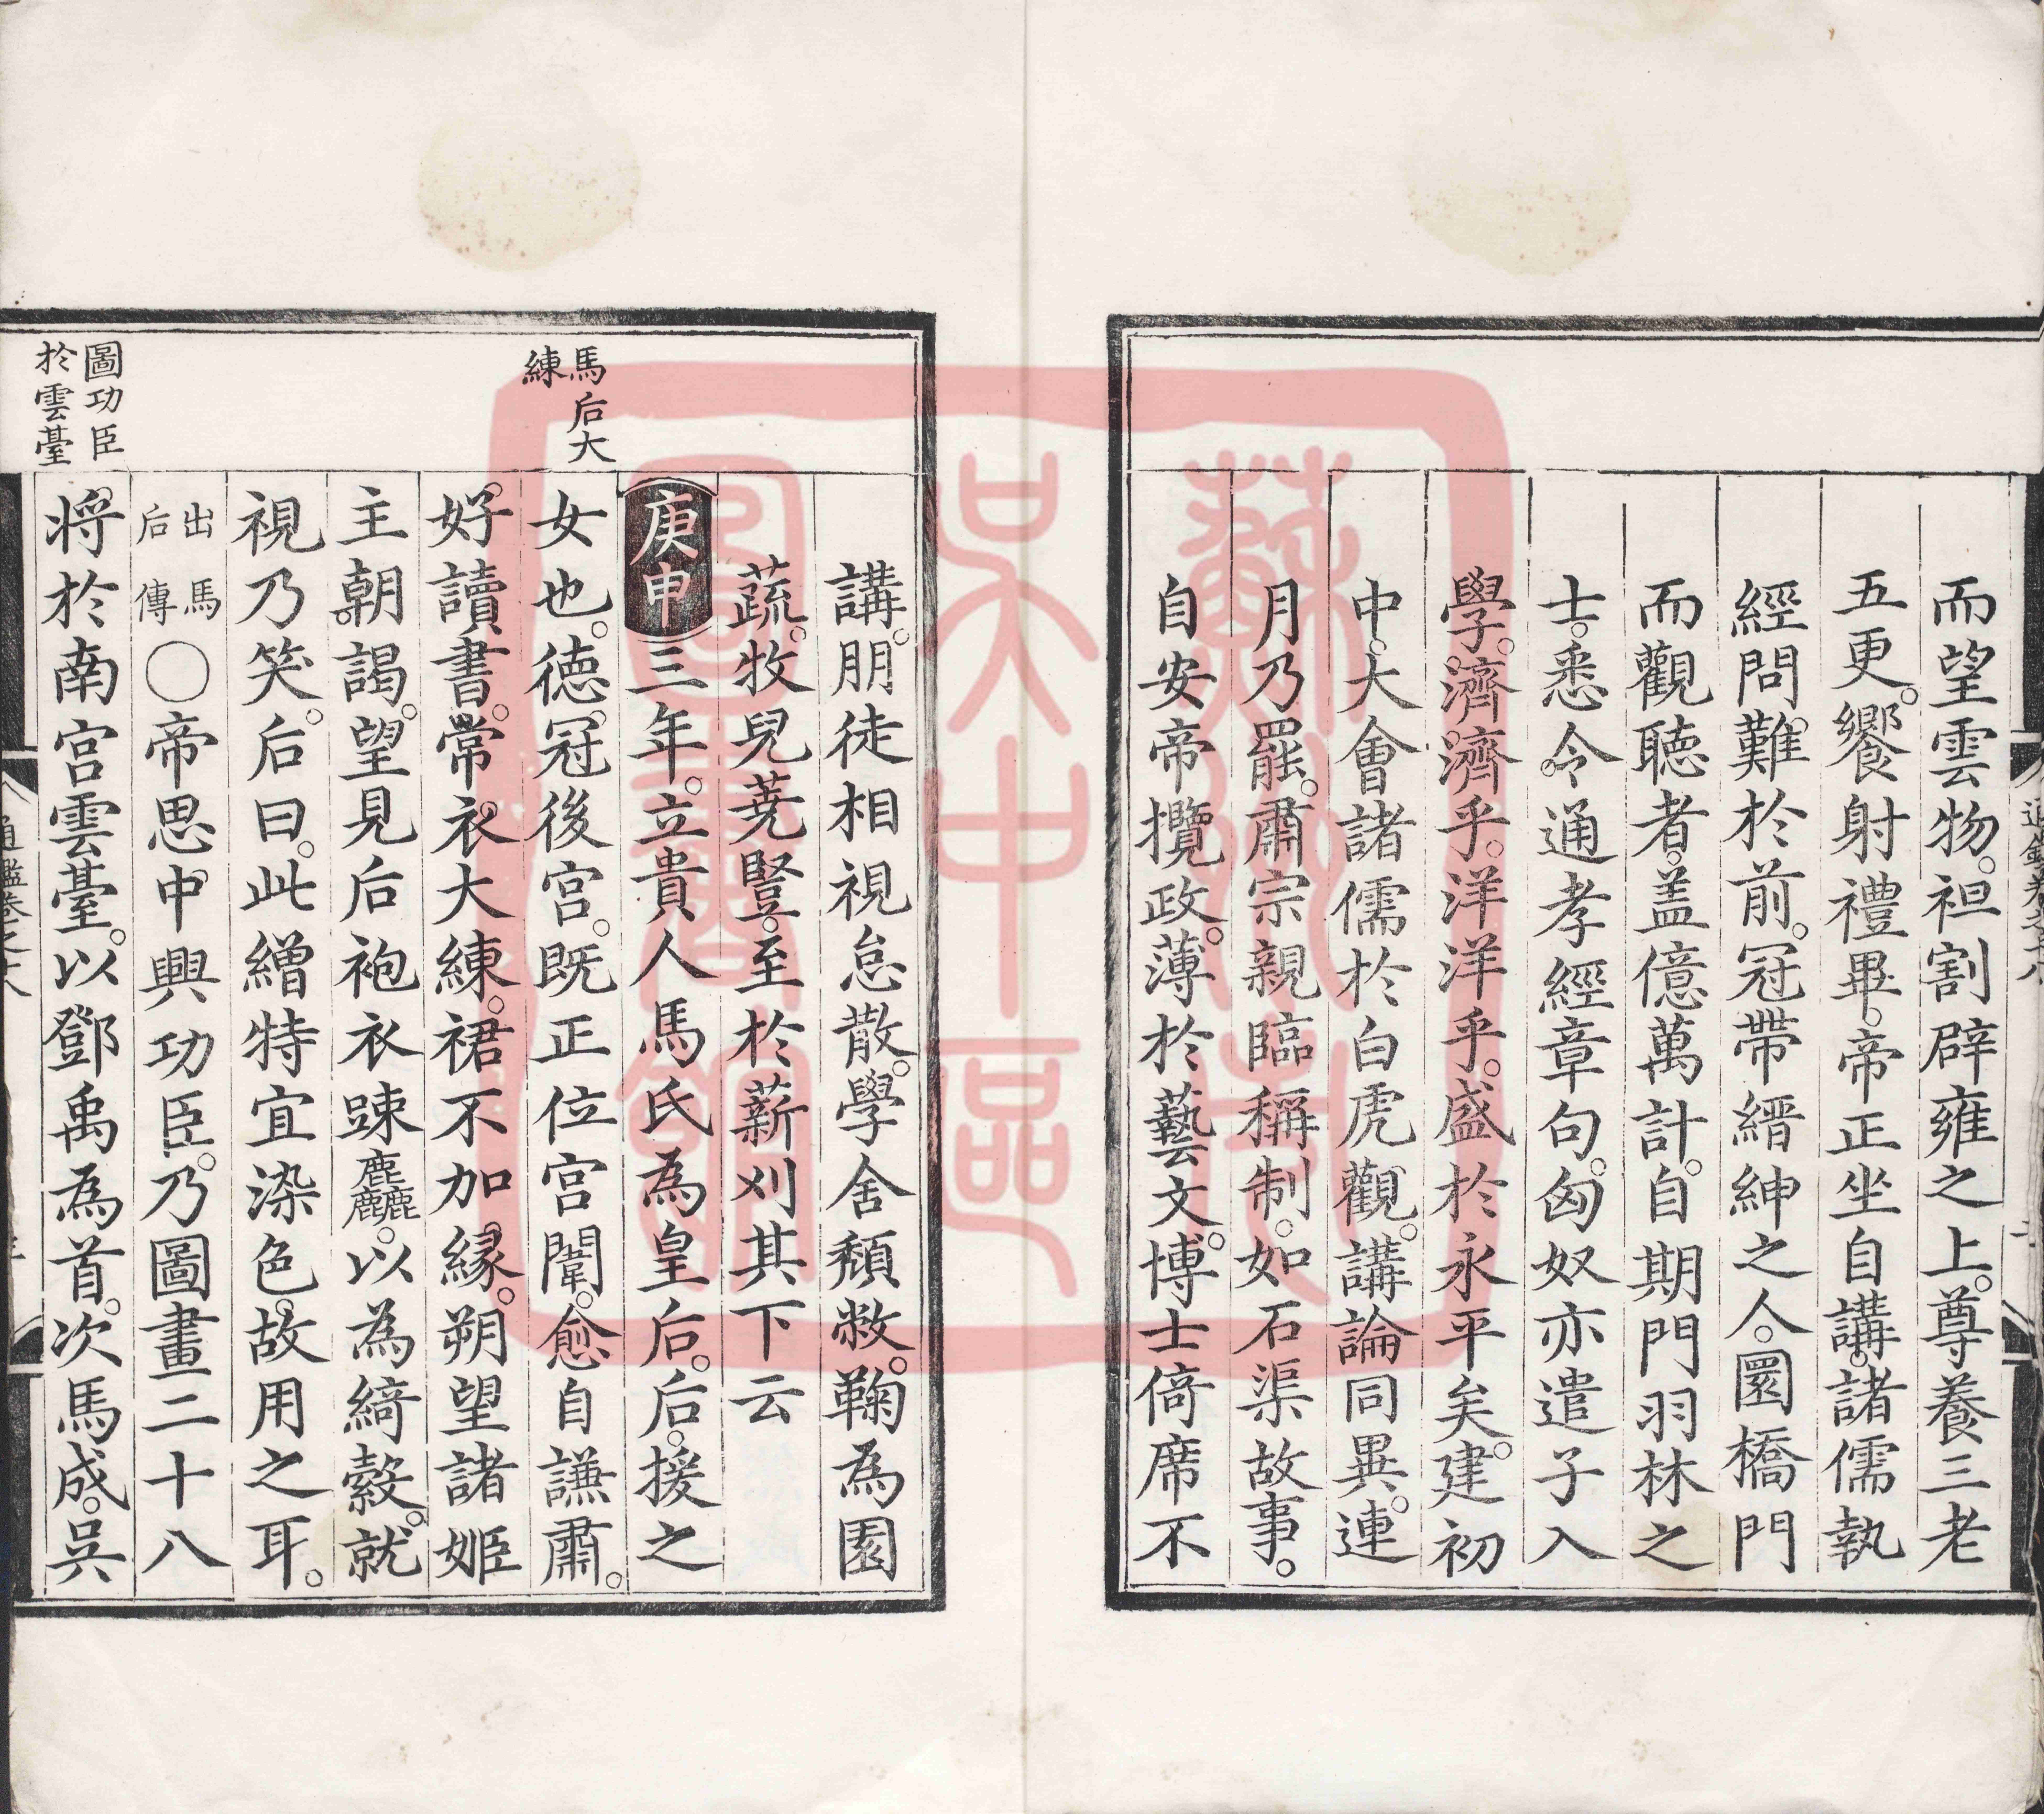 而望雲物。袒割辟雍之上。尊養三老
五更。饗射禮畢。帝正坐自講。諸儒執
經問難於前。冠帶縉紳之人。圜橋門
而觀聽者。盖億萬計。自期門羽林之
士。悉令通孝經章句。匈奴亦遣子入
學。濟濟乎。洋洋乎。盛於永平矣。建初
中。大會諸儒於白虎觀。講論同異。連
月乃罷。肅宗親臨稱制。如石渠故事。
自安帝攬政。薄於藝文。博士倚席不
講。朋徒相視怠散。學舍頹敝。鞠為園
蔬。牧兒蕘豎。至於薪刈其下云
庚申三年。立貴人馬氏為皇后。后。援之
馬后大
練
女也。德冠後宮。既正位宮闈。愈自謙肅。
好讀書。常衣大練。裙不加緣。朔望諸姬
主朝謁。望見后袍衣踈麤。以為綺縠。就
視乃笑。后曰。此繒特宜染色。故用之耳。
出馬
后傳
○帝思中興功臣。乃圖畫二十八
圖功臣
於雲臺
將於南宮雲臺。以鄧禹為首。次馬成。吳
蘇州市
吳中區
圖書館